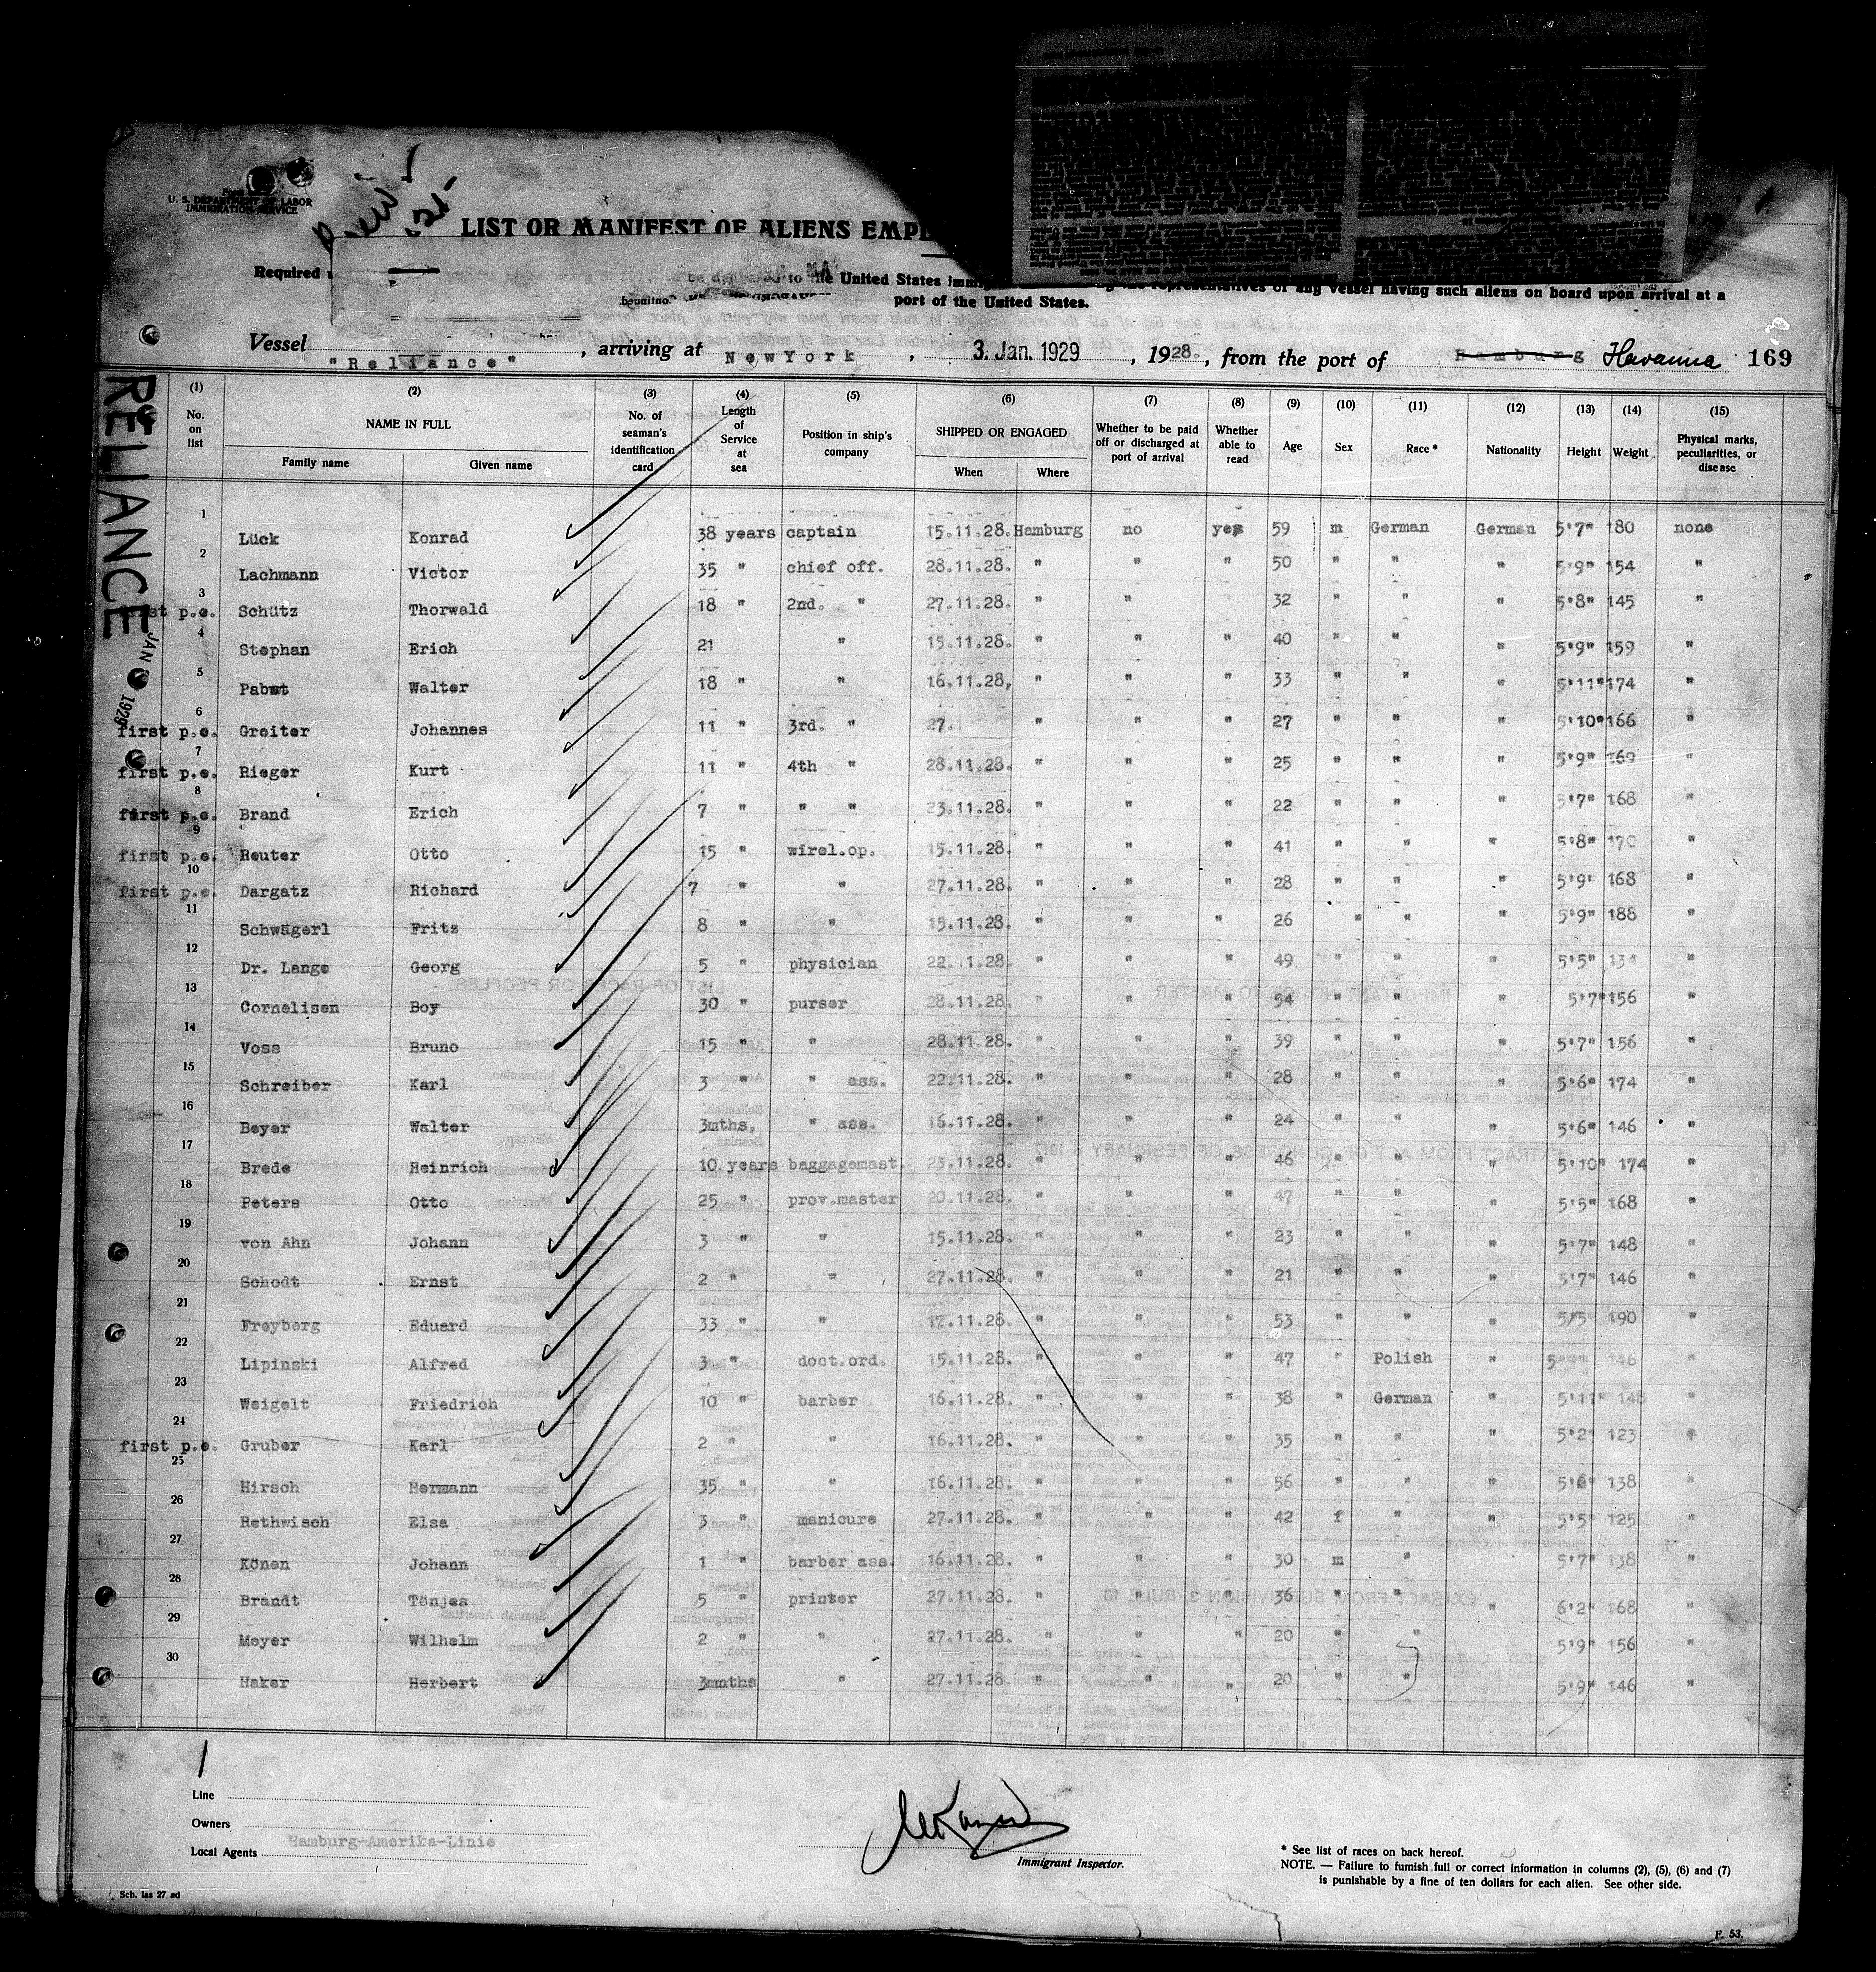 U. S. DEPARTMENT OF LABOR
IMMIGRATION SERVICE
LIST OR MANIFEST OF ALIENS EMPL
Required
to the United States immig representatives of any vessel having such aliens on board upon arrival at a
port of the United States.
Vessel "Reliance", arriving at NewYork, 3. Jan. 1929, 1928., from the port of Hamburg Havanna 169
RELIANCE
JAN 1929
(1) (2) (3) (4) (5) (6) (7) (8) (9) (10) (11) (12) (13) (14) (15)
No. on list NAME IN FULL Family name Given name No. of seaman's identification card Length of Service at sea Position in ship's company SHIPPED OR ENGAGED When Where Whether to be paid off or discharged at port of arrival Whether able to read Age Sex Race * Nationality Height Weight Physical marks, peculiarities, or disease
1 Lück Konrad 38 years captain 15.11.28. Hamburg no yes 59 m German German 5'7" 180 none
2 Lachmann Victor 35 " chief off. 28.11.28. " " " 50 " " " 5'9" 154 "
3 first p.e. Schütz Thorwald 18 " 2nd. " 27.11.28. " " 32 " " " 5'8" 145 "
4 Stephan Erich 21 " 15.11.28. " " " 40 " " " 5'9" 159 "
5 Pabst Walter 18 " " 16.11.28, " " " 33 " " " 5'11" 174 "
6 first p.e. Greiter Johannes 11 " 3rd. " 27. " " " 27 " " " 5'10" 166 "
7 first p.e. Rieger Kurt 11 " 4th " 28.11.28. " " " 25 " " " 5'9" 169 "
8 first p.e. Brand Erich 7 " " " 23.11.28. " " " 22 " " " 5'7" 168 "
9 first p.e. Reuter Otto 15 " wirel.op. 15.11.28. " " " 41 " " " 5'8" 170 "
10 first p.e. Dargatz Richard 7 " " 27.11.28. " " " 28 " " " 5'9" 168 "
11 Schwägerl Fritz 8 " " 15.11.28. " " " 26 " " " 5'9" 188 "
12 Dr. Lange Georg 5 " physician 22. 1.28. " " " 49 " " " 5'5" 134 "
13 Cornelisen Boy 30 " purser 28.11.28. " " " 54 " " " 5'7" 156 "
14 Voss Bruno 15 " " 28.11.28. " " " 39 " " " 5'7" 156 "
15 Schreiber Karl 3 " " ass. 22.11.28. " " " 28 " " " 5'6" 174 "
16 Beyer Walter 3mths, " ass. 16.11.28. " " " 24 " " " 5'6" 146 "
17 Brede Heinrich 10 years baggagemast. 23.11.28. " " " 46 " " " 5'10" 174 "
18 Peters Otto 25 " prov.master 20.11.28. " " " 47 " " " 5'5" 168 "
19 von Ahn Johann 3 " " 15.11.28. " " " 23 " " " 5'7" 148 "
20 Schodt Ernst 2 " " 27.11.28. " " " 21 " " " 5'7" 146 "
21 Freyberg Eduard 33 " " 17.11.28. " " " 53 " " " 5'5 190 "
22 Lipinski Alfred 3 " doct.ord. 15.11.28. " " " 47 " Polish " 146 "
23 Weigelt Friedrich 10 " barber 16.11.28. " " " 38 " German " 5'11" 148 "
24 first p.e. Gruber Karl 2 " " 16.11.28. " " " 35 " " " 5'2" 123 "
25 Hirsch Hermann 35 " " 16.11.28. " " " 56 " " " 5'6" 138 "
26 Rethwisch Elsa 3 " manicure 27.11.28. " " " 42 f " " 5'5" 125 "
27 Könen Johann 1 " barber ass. 16.11.28. " " " 30 m " 5'7" 138 "
28 Brandt Tönjes 5 " printer 27.11.28. " " " 36 " " " 6'2" 168 "
29 Meyer Wilhelm 2 " " 27.11.28. " " " 20 " " 5'9" 156 "
30 Haker Herbert 3mnths " 27.11.28. " " " 20 " " 5'9" 146 "
Line
Owners
Hamburg-Amerika-Linie
Local Agents
Immigrant Inspector.
* See list of races on back hereof.
NOTE. — Failure to furnish full or correct information in columns (2), (5), (6) and (7)
is punishable by a fine of ten dollars for each alien. See other side.
Sch. las 27 ad
F. 53.